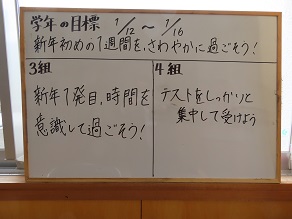 学年の目標 1/12 〜 1/16
新年初めの1週間を、さわやかに過ごそう!
3組
新年1発目、時間を
意識して過ごそう!
4組
テストをしっかりと
集中して受けよう